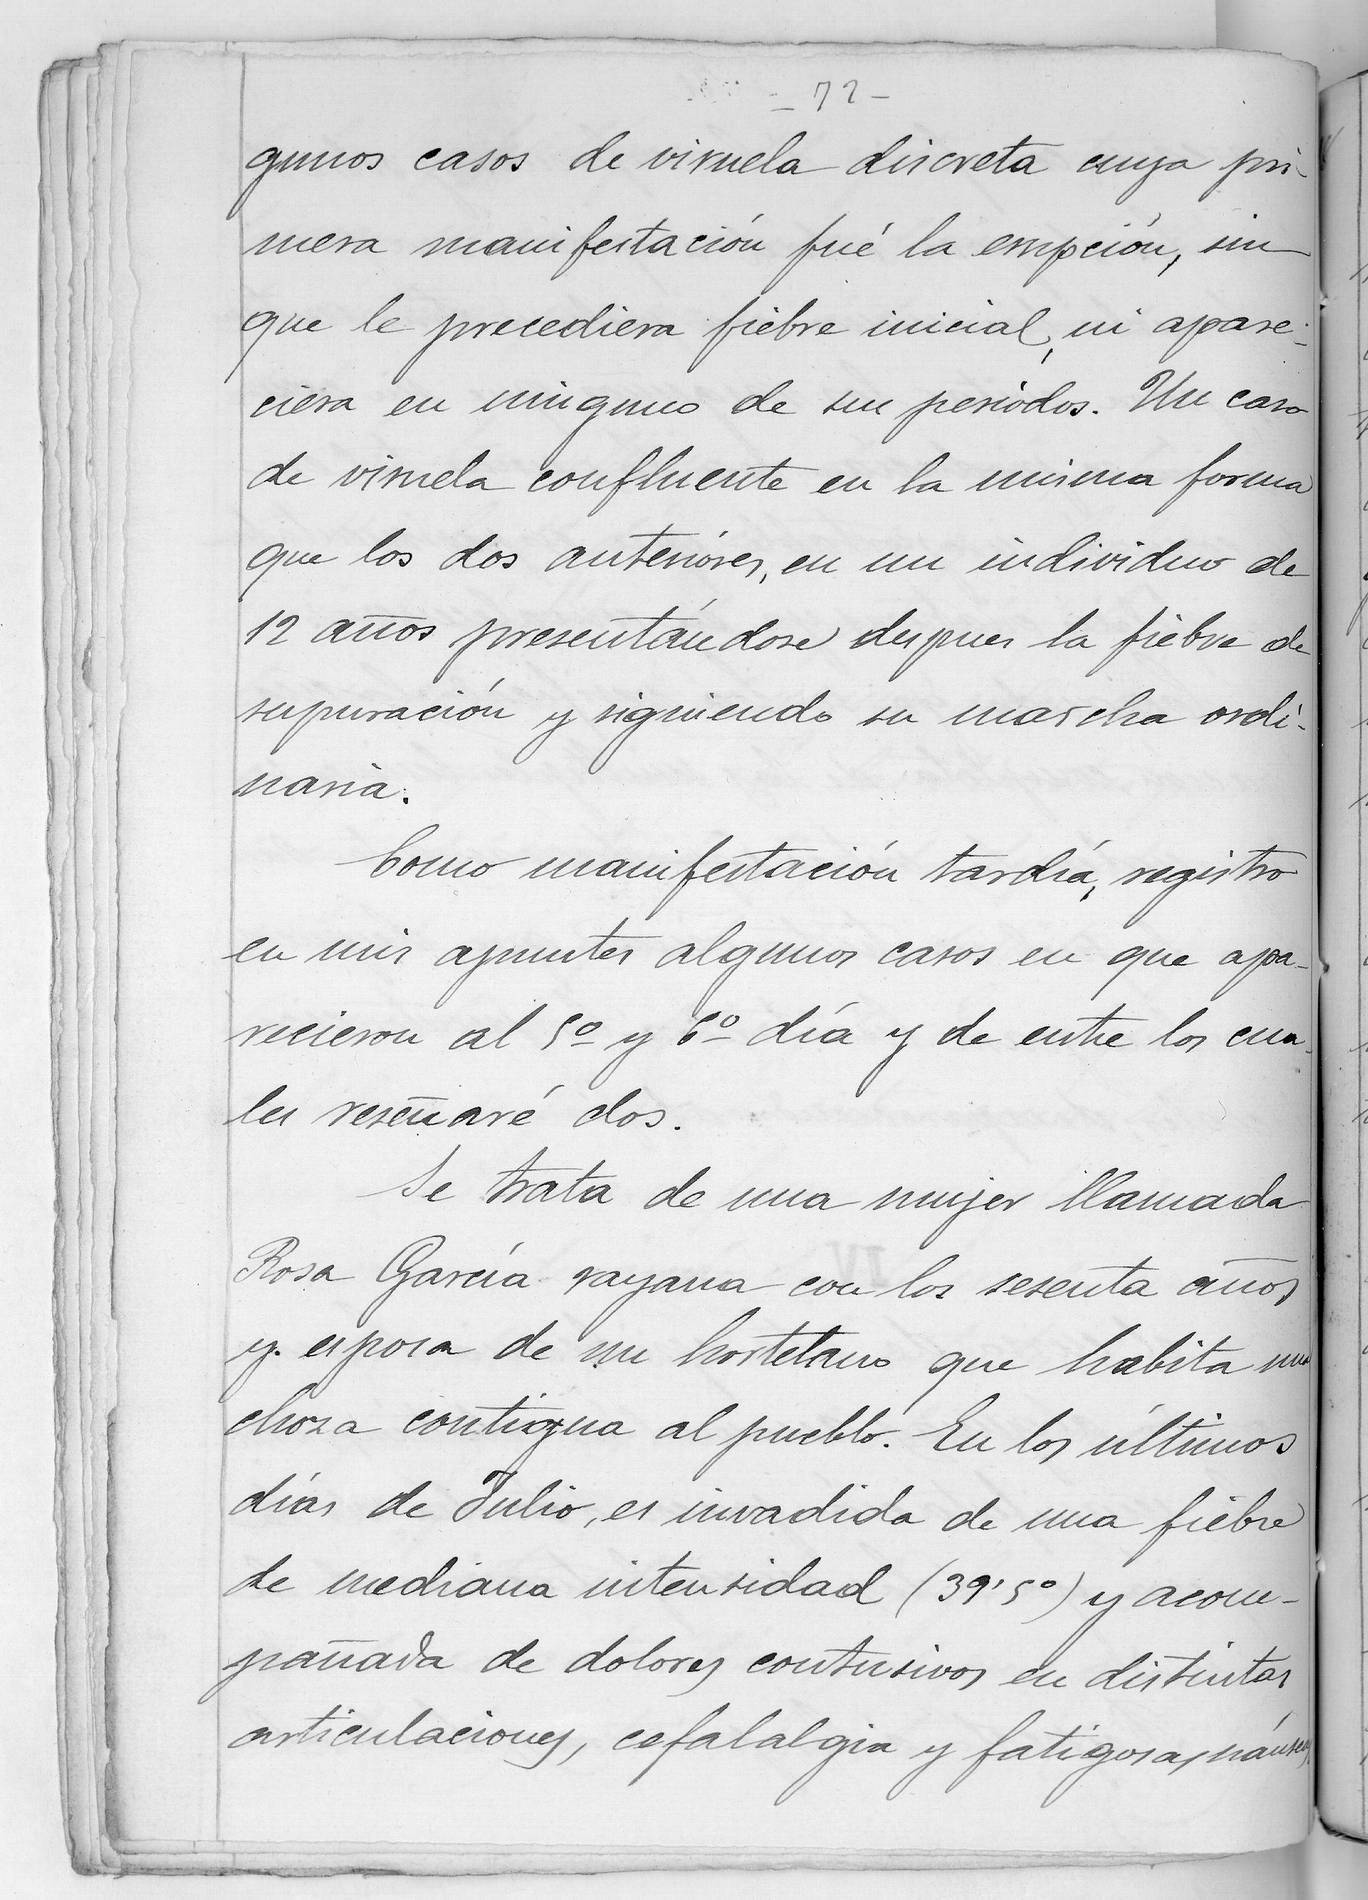 - 72 -
gunos casos de viruela discreta cuya pri-
mera manifestación fué la erupción, sin
que le precediera fiebre inicial, ni apare-
ciera en ninguno de sus periódos. Un caso
de viruela confluente en la misma forma
que los dos anterióres, en un individuo de
12 años presentándose despues la fiebre de
supuración y siguiendo su marcha ordi-
naria.
Como manifestación tardía, registro
en mis apuntes algunos casos en que apa-
recieron al 5º y 6º día y de entre los cua-
les reseñaré dos.
Se trata de una mujer llamada
Rosa García rayana con los sesenta años
y esposa de un hortelano que habita una
choza contigua al pueblo. En los últimos
días de Julio, es invadida de una fiebre
de mediana intensidad (39'5º) y acom-
pañada de dolores contusivos en distintas
articulaciones, cefalalgia y fatigosas náuseas,